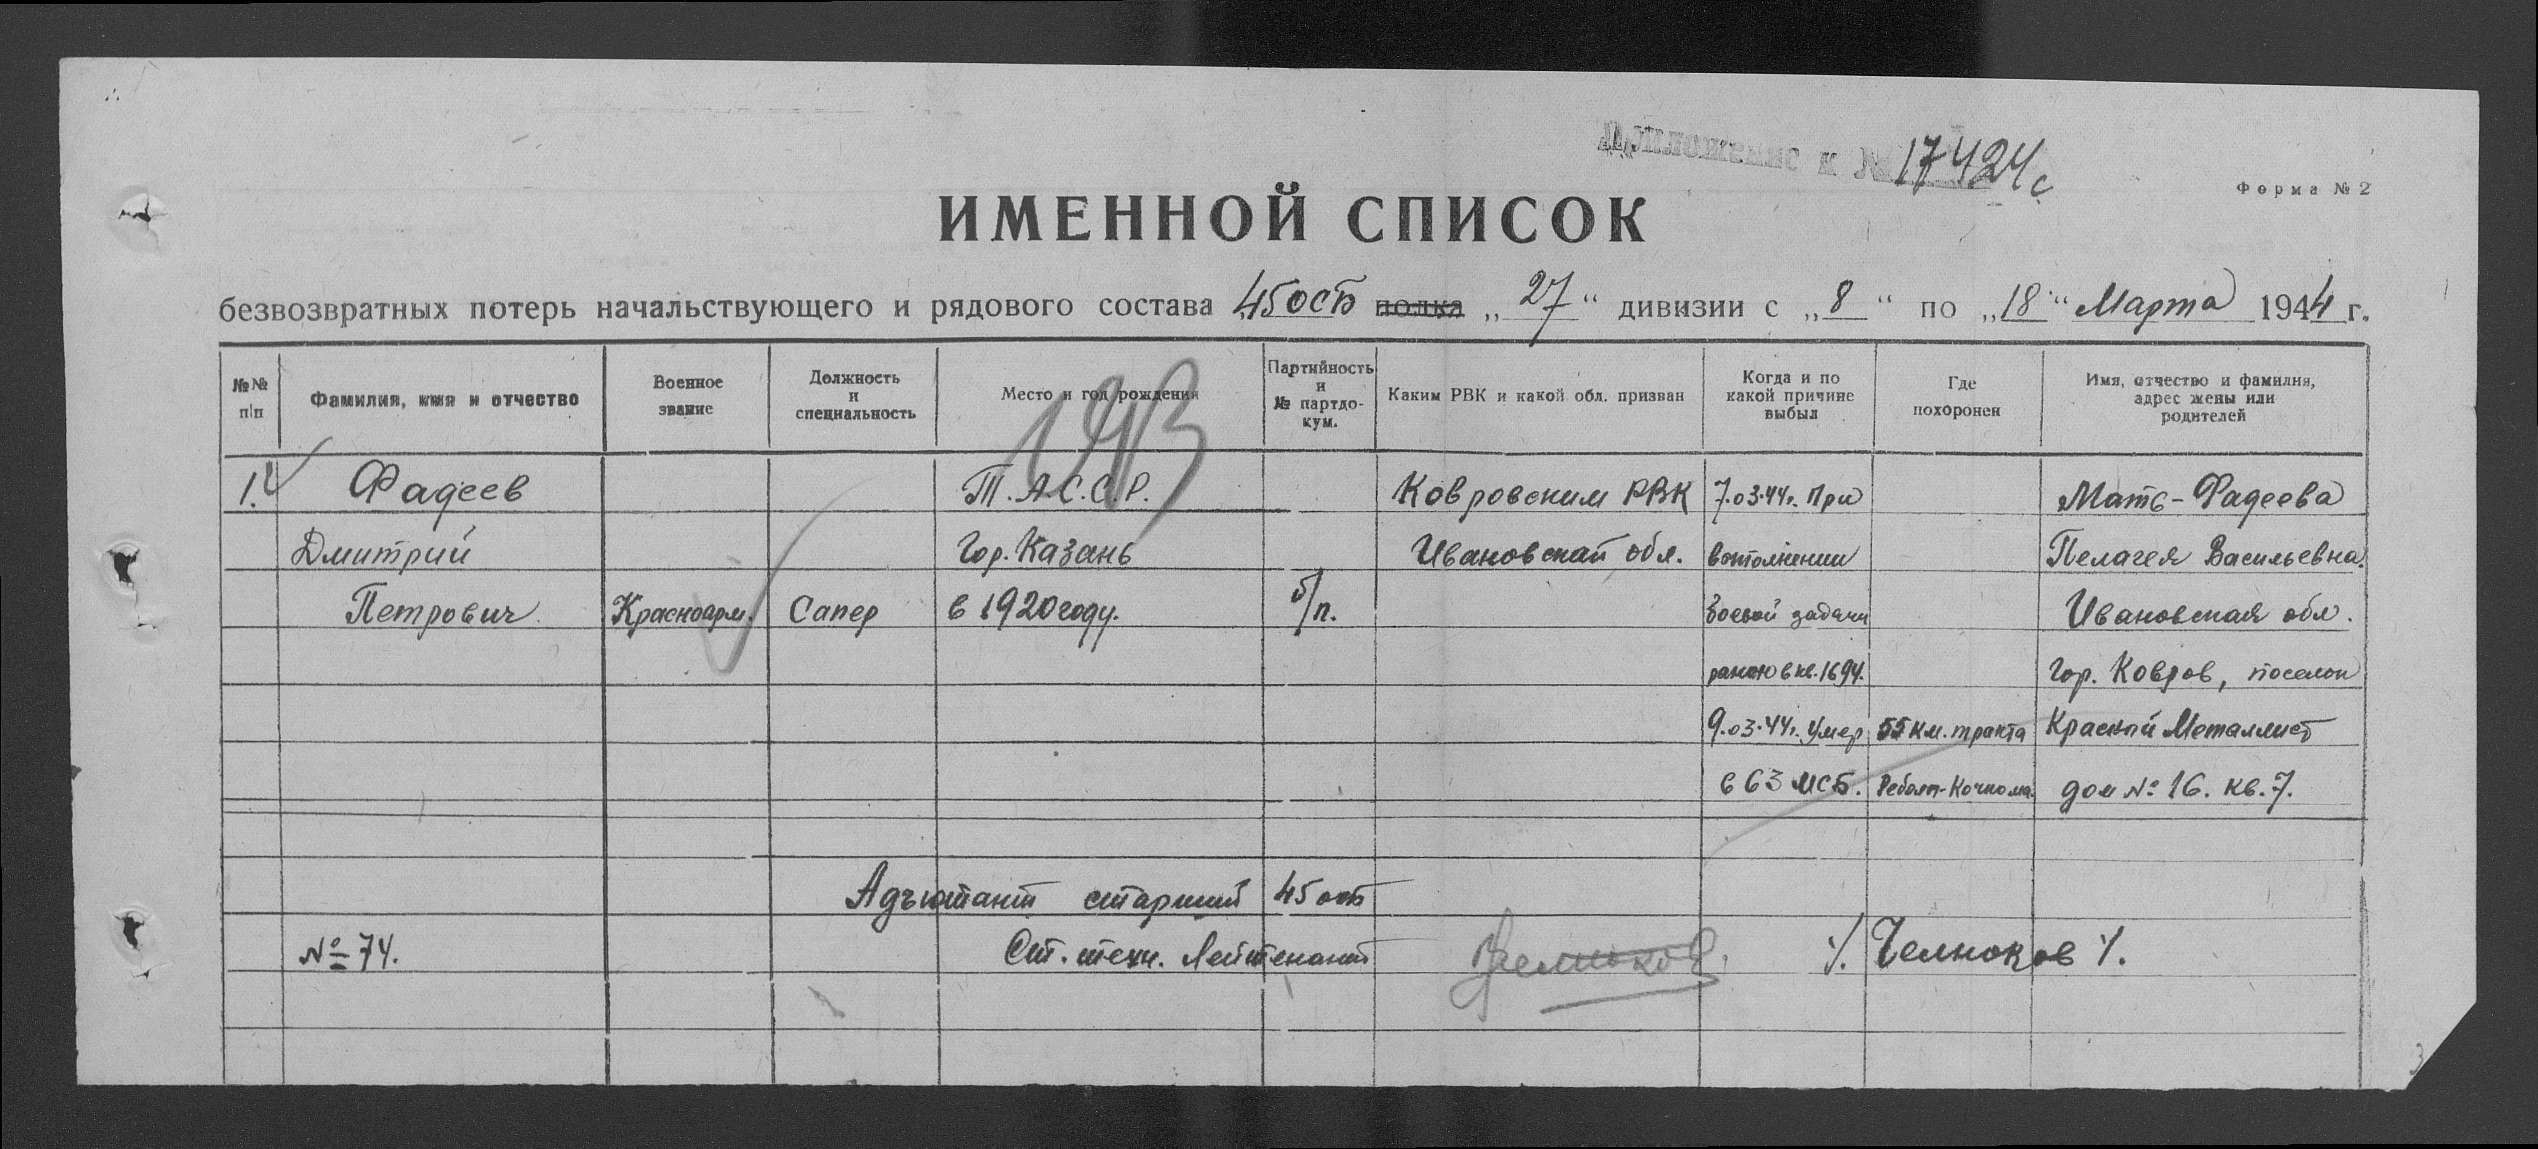 Приложение к № 17424с
Форма № 2
ИМЕННОЙ СПИСОК
безвозвратных потерь начальствующего и рядового состава 45 ОСБ полка „27“ дивизии с „8“ по „18“ Марта 1944 г.
№№ п/п
Фамилия, имя и отчество
Военное звание
Должность и специальность
Место и год рождения
Партийность и № партдо-кум.
Каким РВК и какой обл. призван
Когда и по какой причине выбыл
Где похоронен
Имя, отчество и фамилия, адрес жены или родителей
1. Фадеев Т.А.С.С.Р. Ковровским РВК 7.03.44г. При Мать - Фадеева
Дмитрий Гор. Казань Ивановской обл. выполнении Пелагея Васильевна.
Петрович Красноарм. Сапер в 1920 году. б/п. боевой задачи Ивановская обл.
в кв. 1694. гор. Ковров, поселок
9.03.44г. Умер 55 км. тракта Красный Металлист
в 63 МСБ. Реболы-Кочкома. дом № 16. кв. 7.
Адъютант старший 45 осб
№ 74. Ст. техн. Лейтенант Челноков. /. Челноков /.